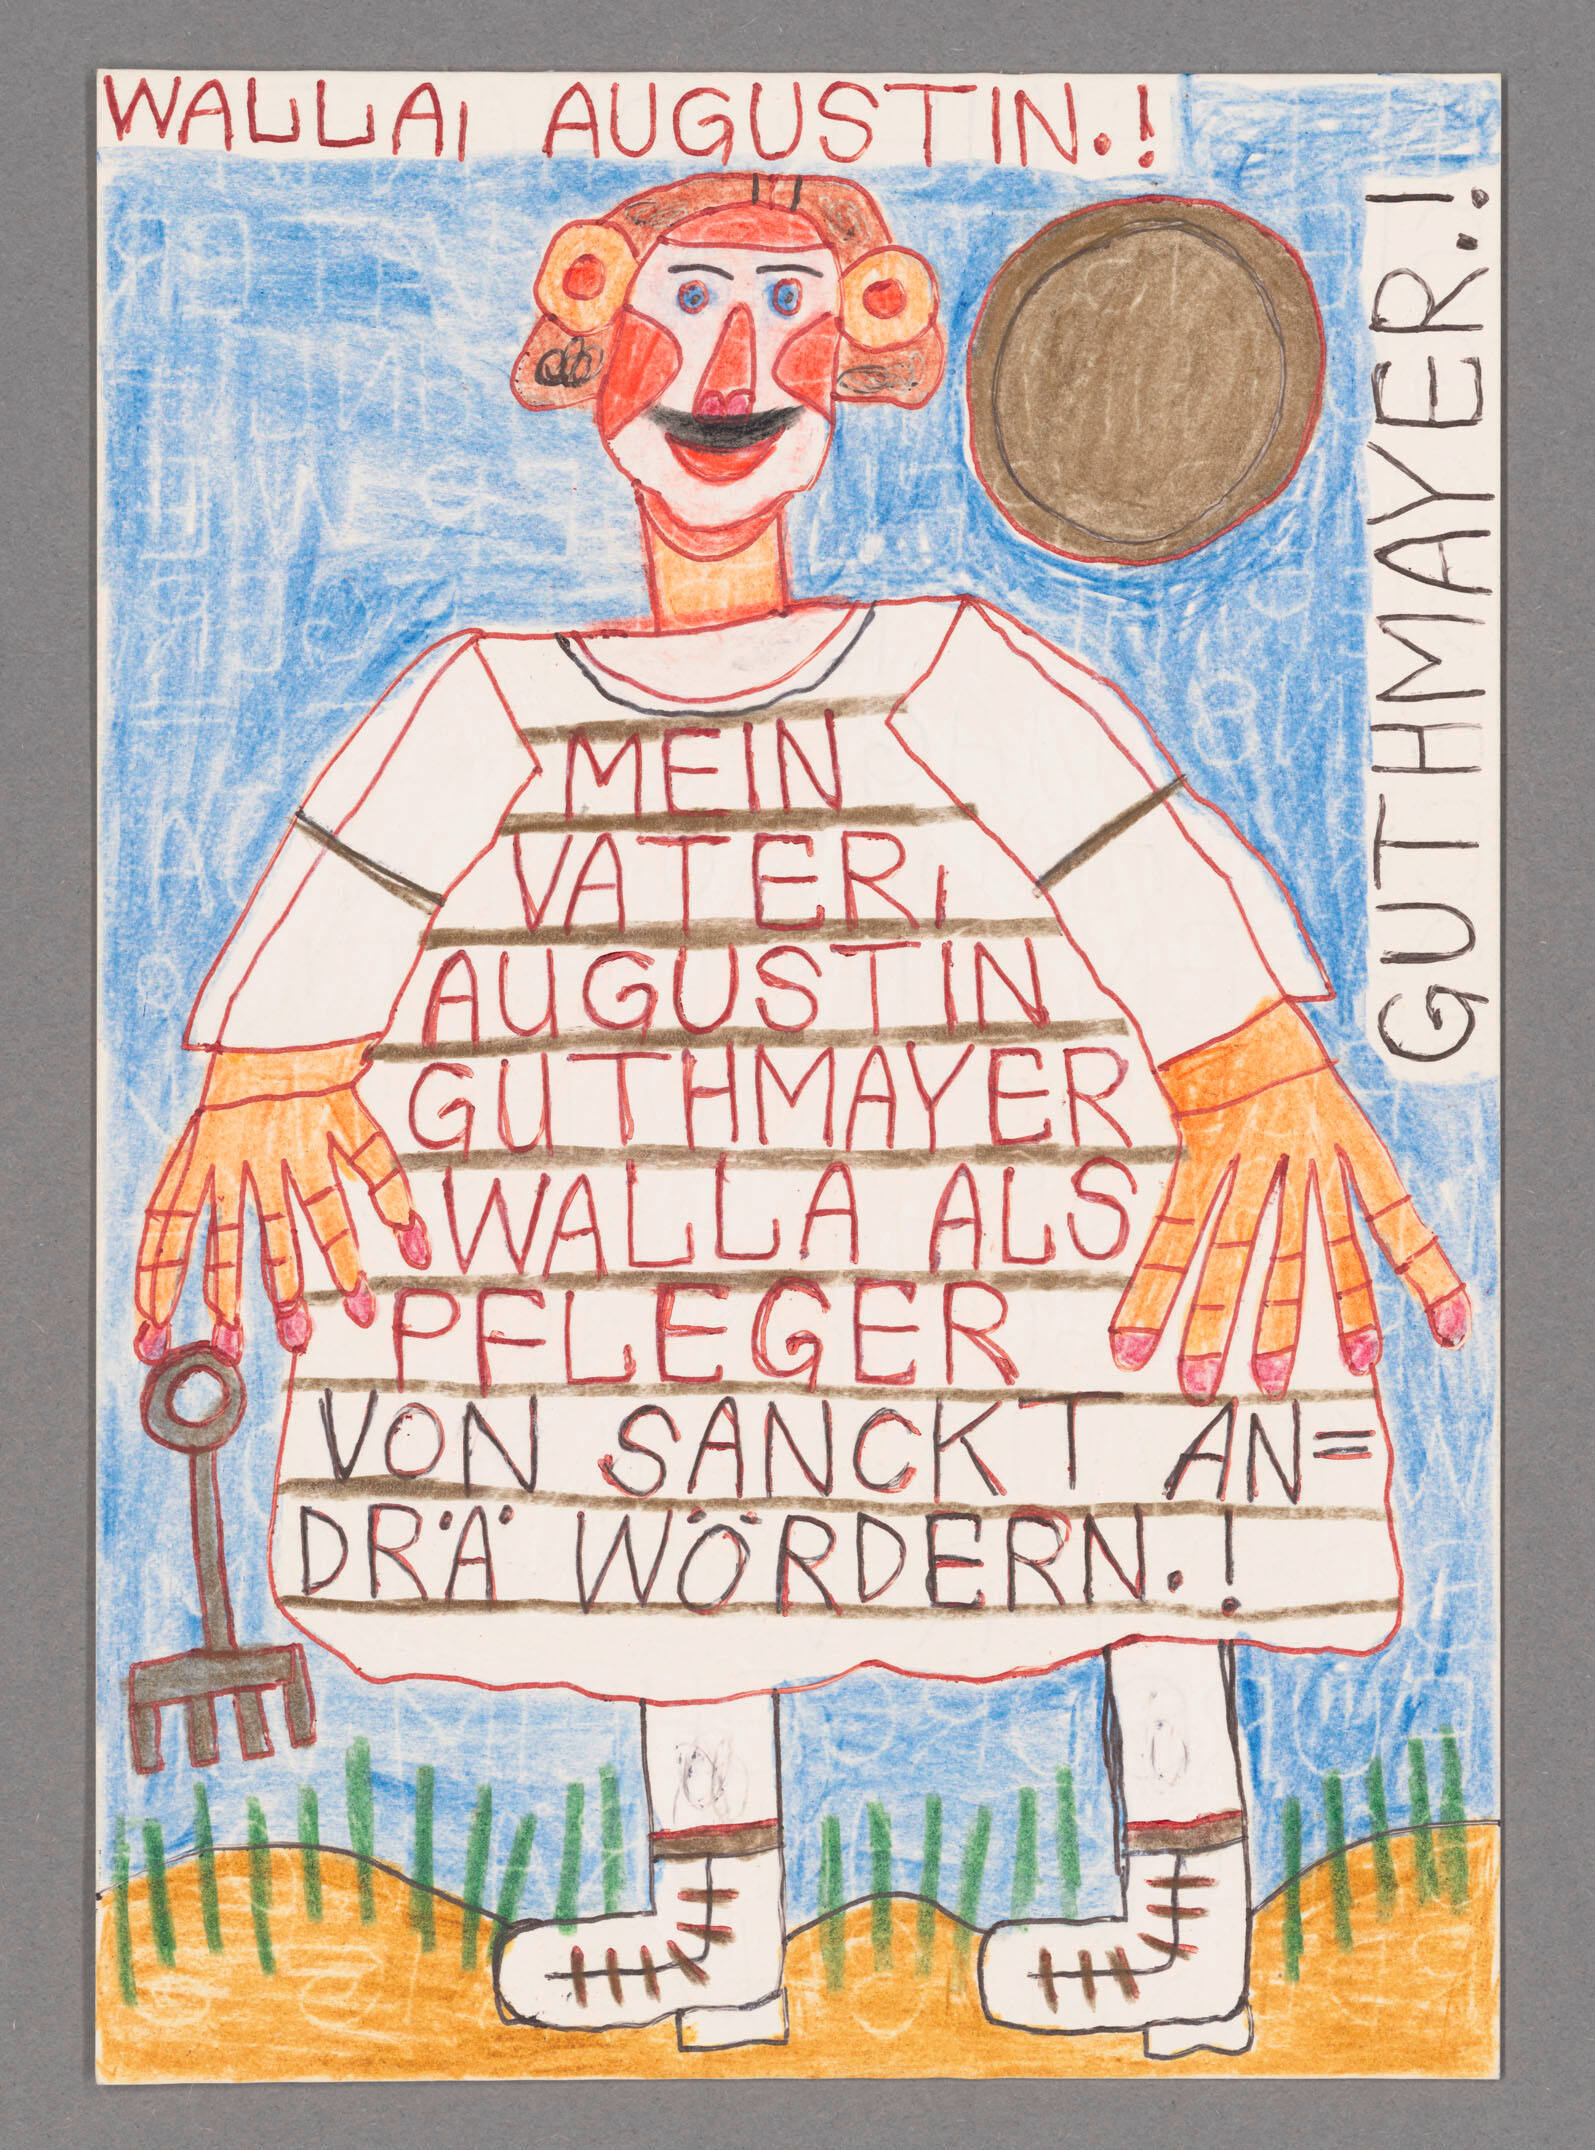 WALLA, AUGUSTIN.!
GUTHMAYER.!
MEIN
VATER,
AUGUSTIN
GUTHMAYER
WALLA ALS
PFLEGER
VON SANCKT AN=
DRÄ WÖRDERN.!